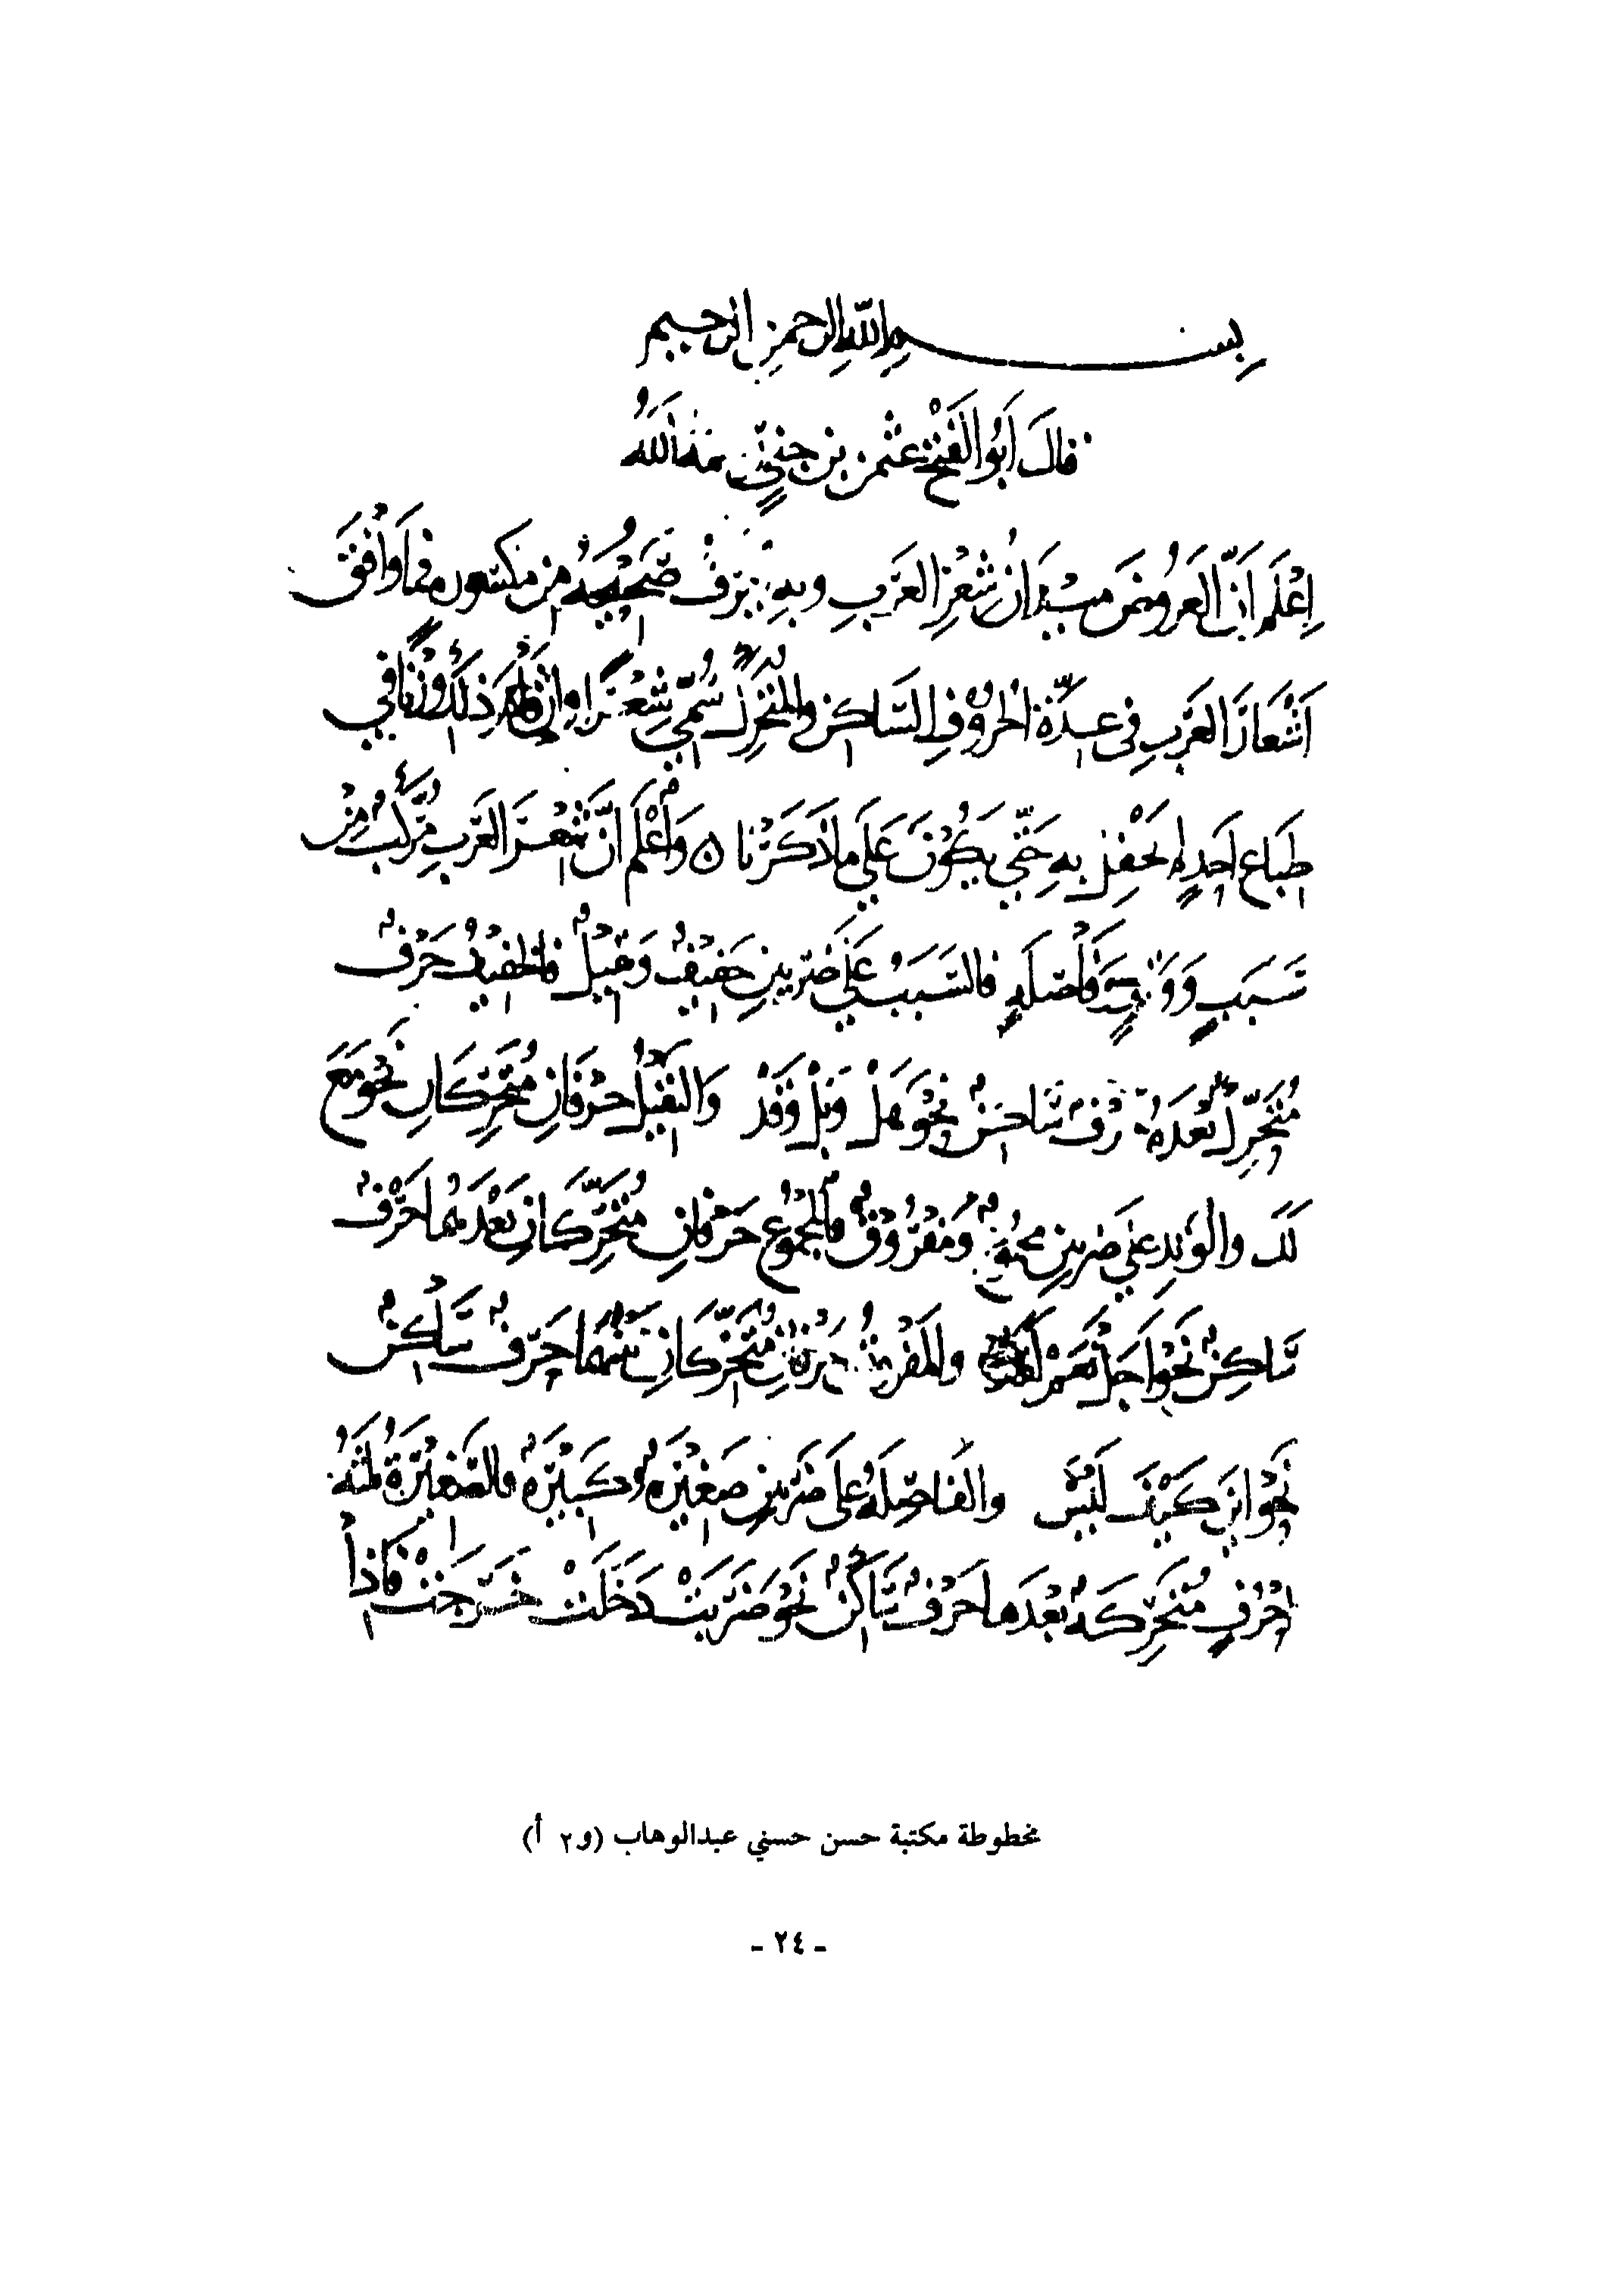 بسم الله الرحمن الرحيم
قَالَ أَبُو الفَتْحِ عُثْمٰن بن جِنِّيٍّ رحمه اللهُ
اِعْلَم أَنَّ العَرُوضَ مِيزَانُ شِعْرِ العَرَبِ وبِهِ يُعرَفُ صَحِيحُهُ مِن مكسُورِه فما وَافَقَ
أَشْعَارَ العَرَبِ فِي عِدَّةِ الحُرُوفِ السَّاكِنِ والمُتَحَرِّكِ سُمِّيَ شِعْرًا وإن ذلكَ وزنًا في
طِبَاعِ أَحَدٍ لم نَحْفِل بِهِ حَتَّى يَكُوْنَ عَلَى مَا ذَكَرْنَا ۞ وَاعْلَم أَنَّ شِعْرَ العَرَبِ مُرَكَّبٌ مِنْ
سَبَبٍ وَوَتِدٍ وَفَاصِلَةٍ فالسَّبَبُ عَلَى ضَربينِ خَفِيْفٌ وَثَقِيْلٌ فالخفِيْفُ حَرْفٌ
مُتَحَرِّكٌ بَعْدَهُ حَرْفٌ سَاكِنٌ نَحْوُ هَلْ وَبَلْ وَقَدْ وَالثَّقِيْلُ حَرْفَانِ مُتَحَرِّكَانِ نَحْوُ مَعَ
لَكَ والوَتِدُ عَلى ضَربينِ مجمُوعٌ وَمَفْرُوْقٌ فالمجمُوْعُ حَرْفَانِ مُتَحَرِّكَانِ بَعْدَهُمَا حَرْفٌ
سَاكِنٌ نَحْوُ أَجَلْ نَعَمْ والمَفْرُوقُ حَرْفَانِ مُتَحَرِّكَانِ بَيْنَهُمَا حَرْفٌ سَاكِنٌ
نَحْوُ أَيْنَ كَيْفَ لَيْسَ والفَاصِلَةُ عَلَى ضَرْبينِ صَغِيْرَةٌ وكَبِيْرَةٌ فالصَّغِيْرَةُ ثلثَةُ
أَحْرُفٍ مُتَحَرِّكَةٌ بَعْدَهَا حَرْفٌ سَاكِنٌ نَحْوُ ضَرَبَتْ دَخَلَتْ خَرَجَتْ فَإِذَا
مخطوطة مكتبة حسن حسني عبدالوهاب (و٢ أ)
- ٢٤ -